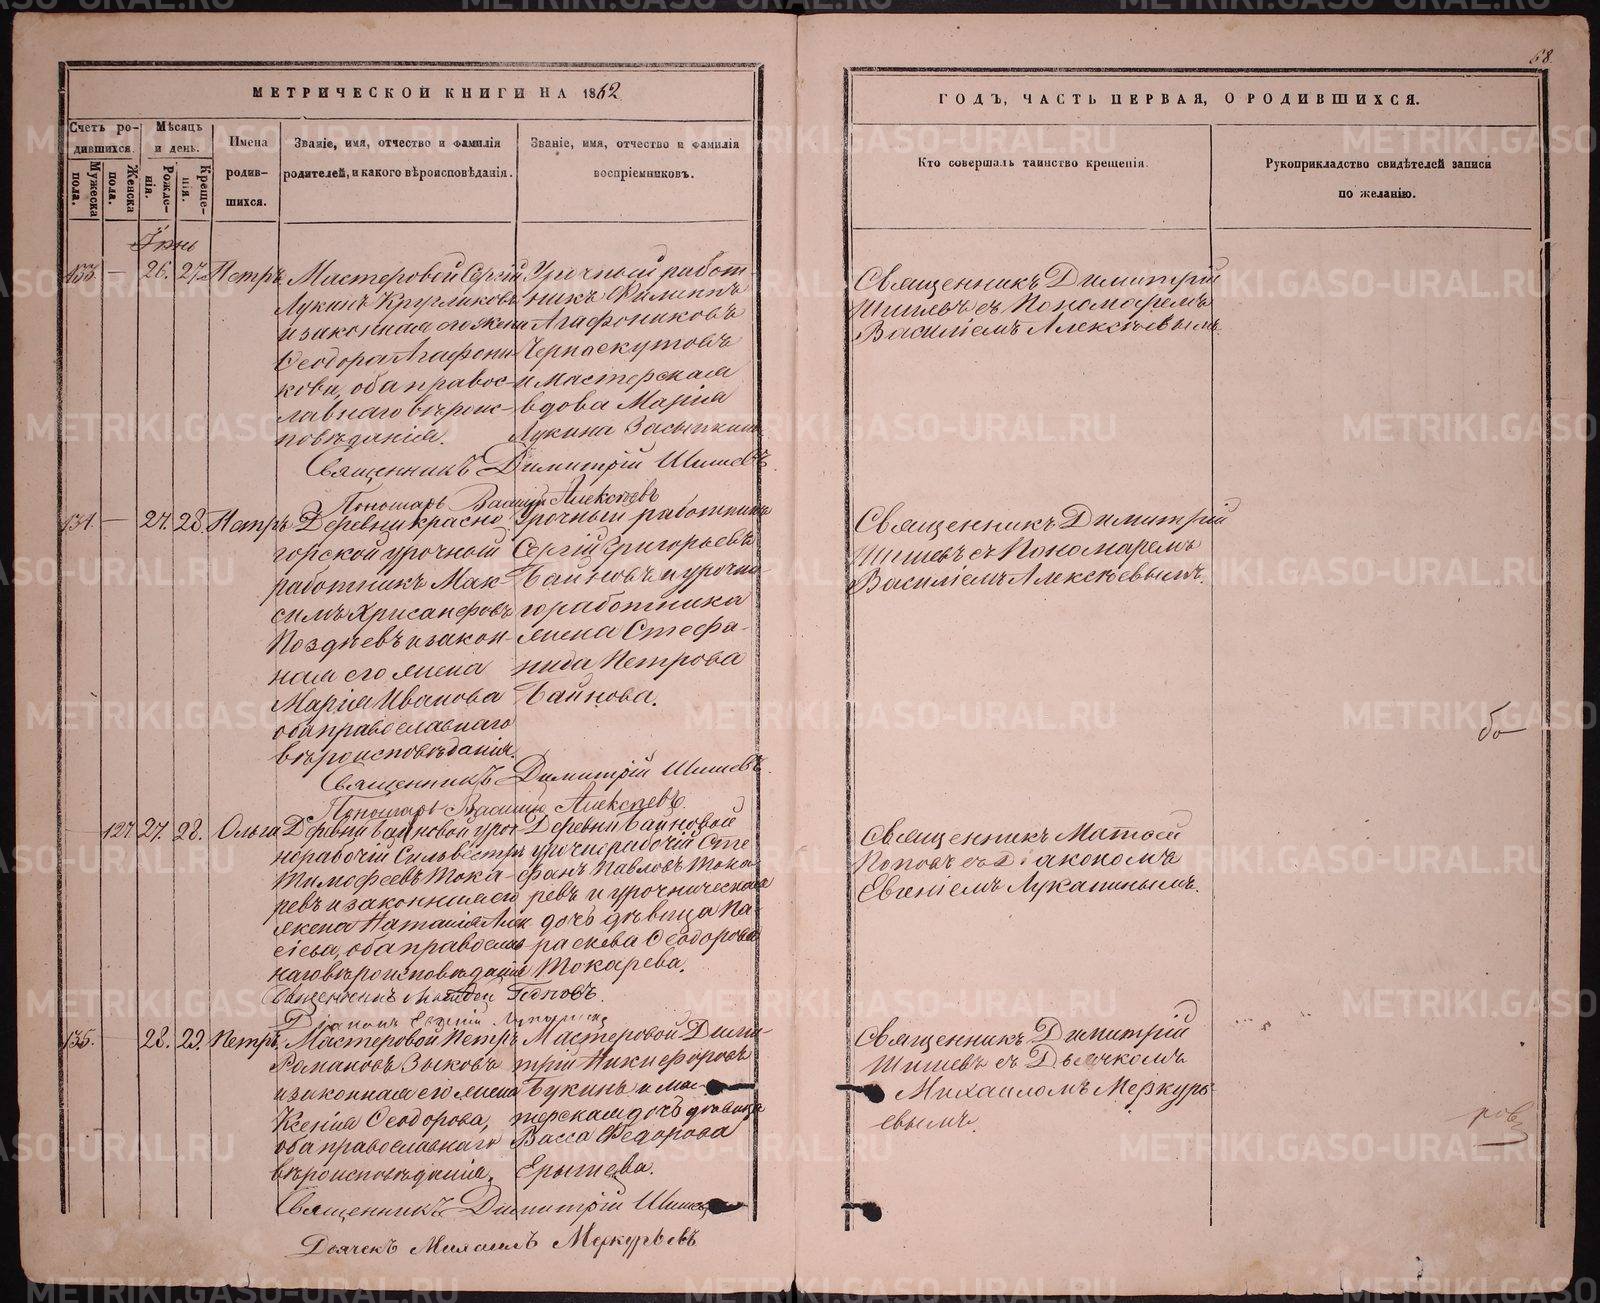 68.
МЕТРИЧЕСКОЙ КНИГИ НА 1862
ГОДЪ, ЧАСТЬ ПЕРВАЯ, О РОДИВШИХСЯ.
Счетъ ро-
дившихся.
Мужеска
пола.
Женска
пола.
Мѣсяцъ
и день.
Рожде-
нія.
Креще-
нія.
Имена
родив-
шихся.
Званіе, имя, отчество и фамилія
родителей, и какого вѣроисповѣданія.
Званіе, имя, отчество и фамилія
воспріемниковъ.
Кто совершалъ таинство крещенія.
Рукоприкладство свидѣтелей записи
по желанію.
133. — 26. 27. Петръ
Мастеровой Сергій
Лукинъ Кругликовъ
и законная его жена
Ѳеодора Агафони-
кова, оба правос-
лавнаго вѣроис-
повѣданія.
Урочный работ-
никъ Филиппъ
Агафониковъ
Черноскутовъ
и мастерская
вдова Марія
Лукина Засыпкина
Священникъ Димитрій Шишевъ
съ Пономаремъ
Василіемъ Алексѣевымъ.
Священникъ Димитрій Шишевъ.
Пономарь Василій Алексѣевъ
134. — 27. 28. Петръ
Деревни Красно-
горской урочный
работникъ Мак-
симъ Хрисанфовъ
Позднѣевъ и закон-
ная его жена
Марія Иванова
оба православнаго
вѣроисповѣданія.
Урочный работникъ
Сергій Григорьевъ
Байновъ и урочна-
го работника
жена Стефа-
нида Петрова
Байнова.
Священникъ Димитрій
Шишевъ съ Пономаремъ
Василіемъ Алексѣевымъ.
Священникъ Димитрій Шишевъ.
Пономарь Василій Алексѣевъ.
127. 27. 28. Ольга
Деревни Байновой уроч-
норабочій Сильвестръ
Тимофеевъ Тока-
ревъ и законная его
жена Наталія Алек-
сіева, оба православ-
наго вѣроисповѣданія
Деревни Байновой
урочнорабочій Сте-
фанъ Павловъ Тока-
ревъ и урочническая
дочь дѣвица Па-
раскева Ѳеодорова
Токарева.
Священникъ Матѳей
Поповъ съ Діакономъ
Евгеніемъ Лукапинымъ.
Священникъ Матѳей Поповъ.
Діаконъ Евгеній
135. — 28. 29. Петръ
Мастеровой Петръ
Романовъ Зыковъ
и законная его жена
Ксенія Ѳеодорова,
оба православнаго
вѣроисповѣданія.
Мастеровой Дими-
трій Никифоровъ
Букинъ и мас-
терская дочь дѣвица
Васса Федорова
Ерышева.
Священникъ Димитрій
Шишевъ съ Дьячкомъ
Михаиломъ Меркурь-
евымъ.
Священникъ Димитрій Шишевъ
Дьячекъ Михаилъ Меркурьевъ
METRIKI.GASO-URAL.RU